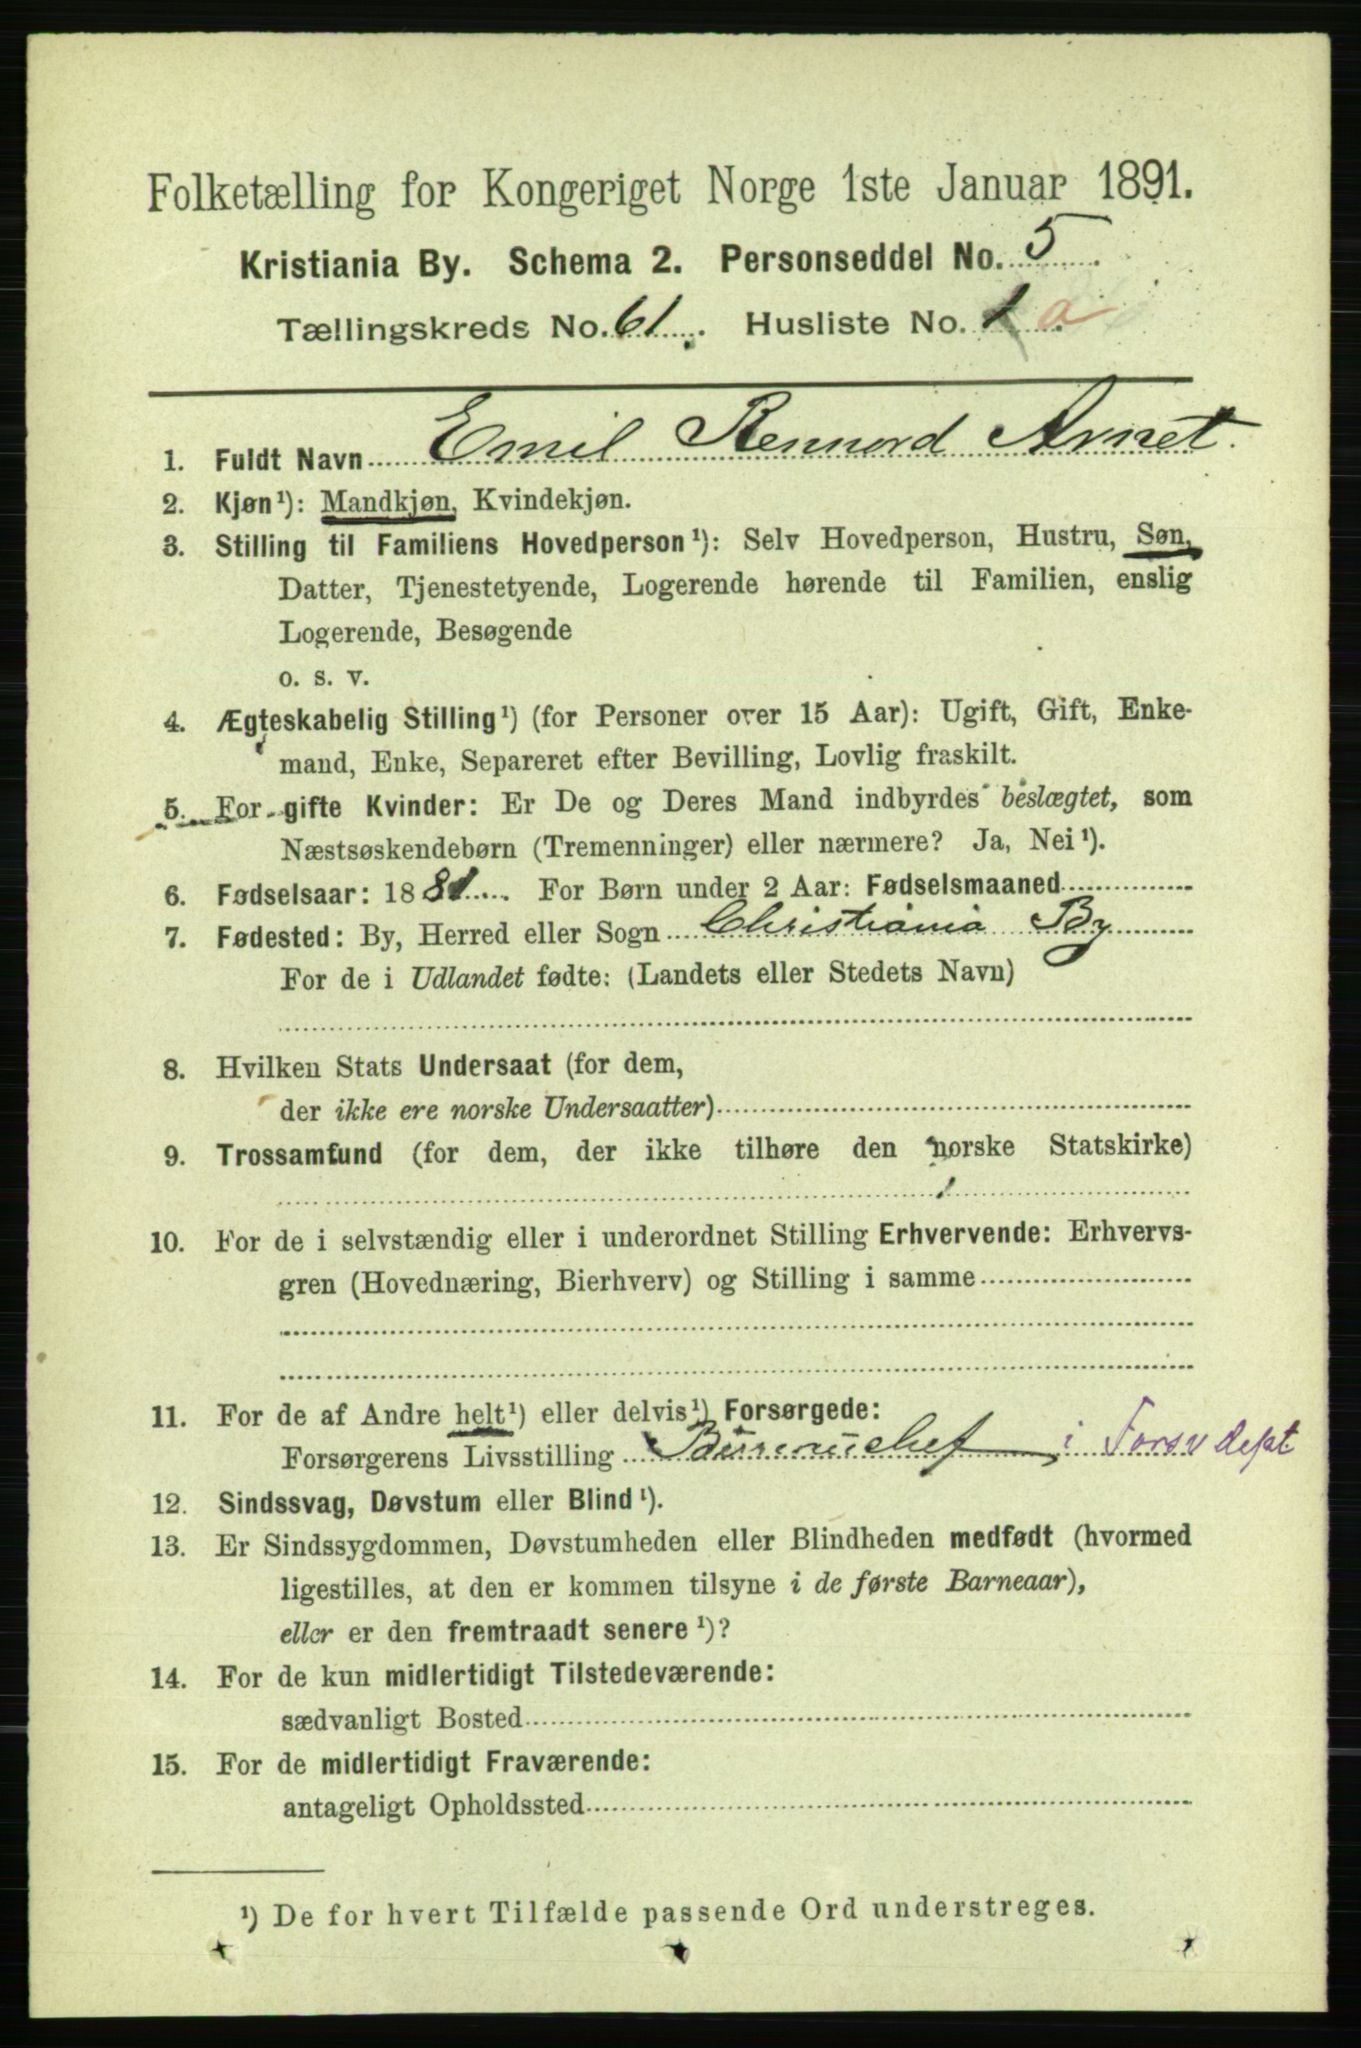 Folketælling for Kongeriget Norge 1ste Januar 1891.
Kristiania By. Schema 2. Personseddel No. 5
Tællingskreds No. 61. Husliste No. 1 a
1. Fuldt Navn Emil Rennord Arnet.
2. Kjøn¹): Mandkjøn, Kvindekjøn.
3. Stilling til Familiens Hovedperson¹): Selv Hovedperson, Hustru, Søn,
Datter, Tjenestetyende, Logerende hørende til Familien, enslig
Logerende, Besøgende
o. s. v.
4. Ægteskabelig Stilling¹) (for Personer over 15 Aar): Ugift, Gift, Enke-
mand, Enke, Separeret efter Bevilling, Lovlig fraskilt.
5. For gifte Kvinder: Er De og Deres Mand indbyrdes beslægtet, som
Næstsøskendebørn (Tremenninger) eller nærmere? Ja, Nei¹).
6. Fødselsaar: 1881. For Børn under 2 Aar: Fødselsmaaned
7. Fødested: By, Herred eller Sogn Christiania By
For de i Udlandet fødte: (Landets eller Stedets Navn)
8. Hvilken Stats Undersaat (for dem,
der ikke ere norske Undersaatter)
9. Trossamfund (for dem, der ikke tilhøre den norske Statskirke)
10. For de i selvstændig eller i underordnet Stilling Erhvervende: Erhvervs-
gren (Hovednæring, Bierhverv) og Stilling i samme
11. For de af Andre helt¹) eller delvis¹) Forsørgede:
Forsørgerens Livsstilling Bureauchef i Forsv dept
12. Sindssvag, Døvstum eller Blind¹).
13. Er Sindssygdommen, Døvstumheden eller Blindheden medfødt (hvormed
ligestilles, at den er kommen tilsyne i de første Barneaar),
eller er den fremtraadt senere¹)?
14. For de kun midlertidigt Tilstedeværende:
sædvanligt Bosted
15. For de midlertidigt Fraværende:
antageligt Opholdssted
¹) De for hvert Tilfælde passende Ord understreges.